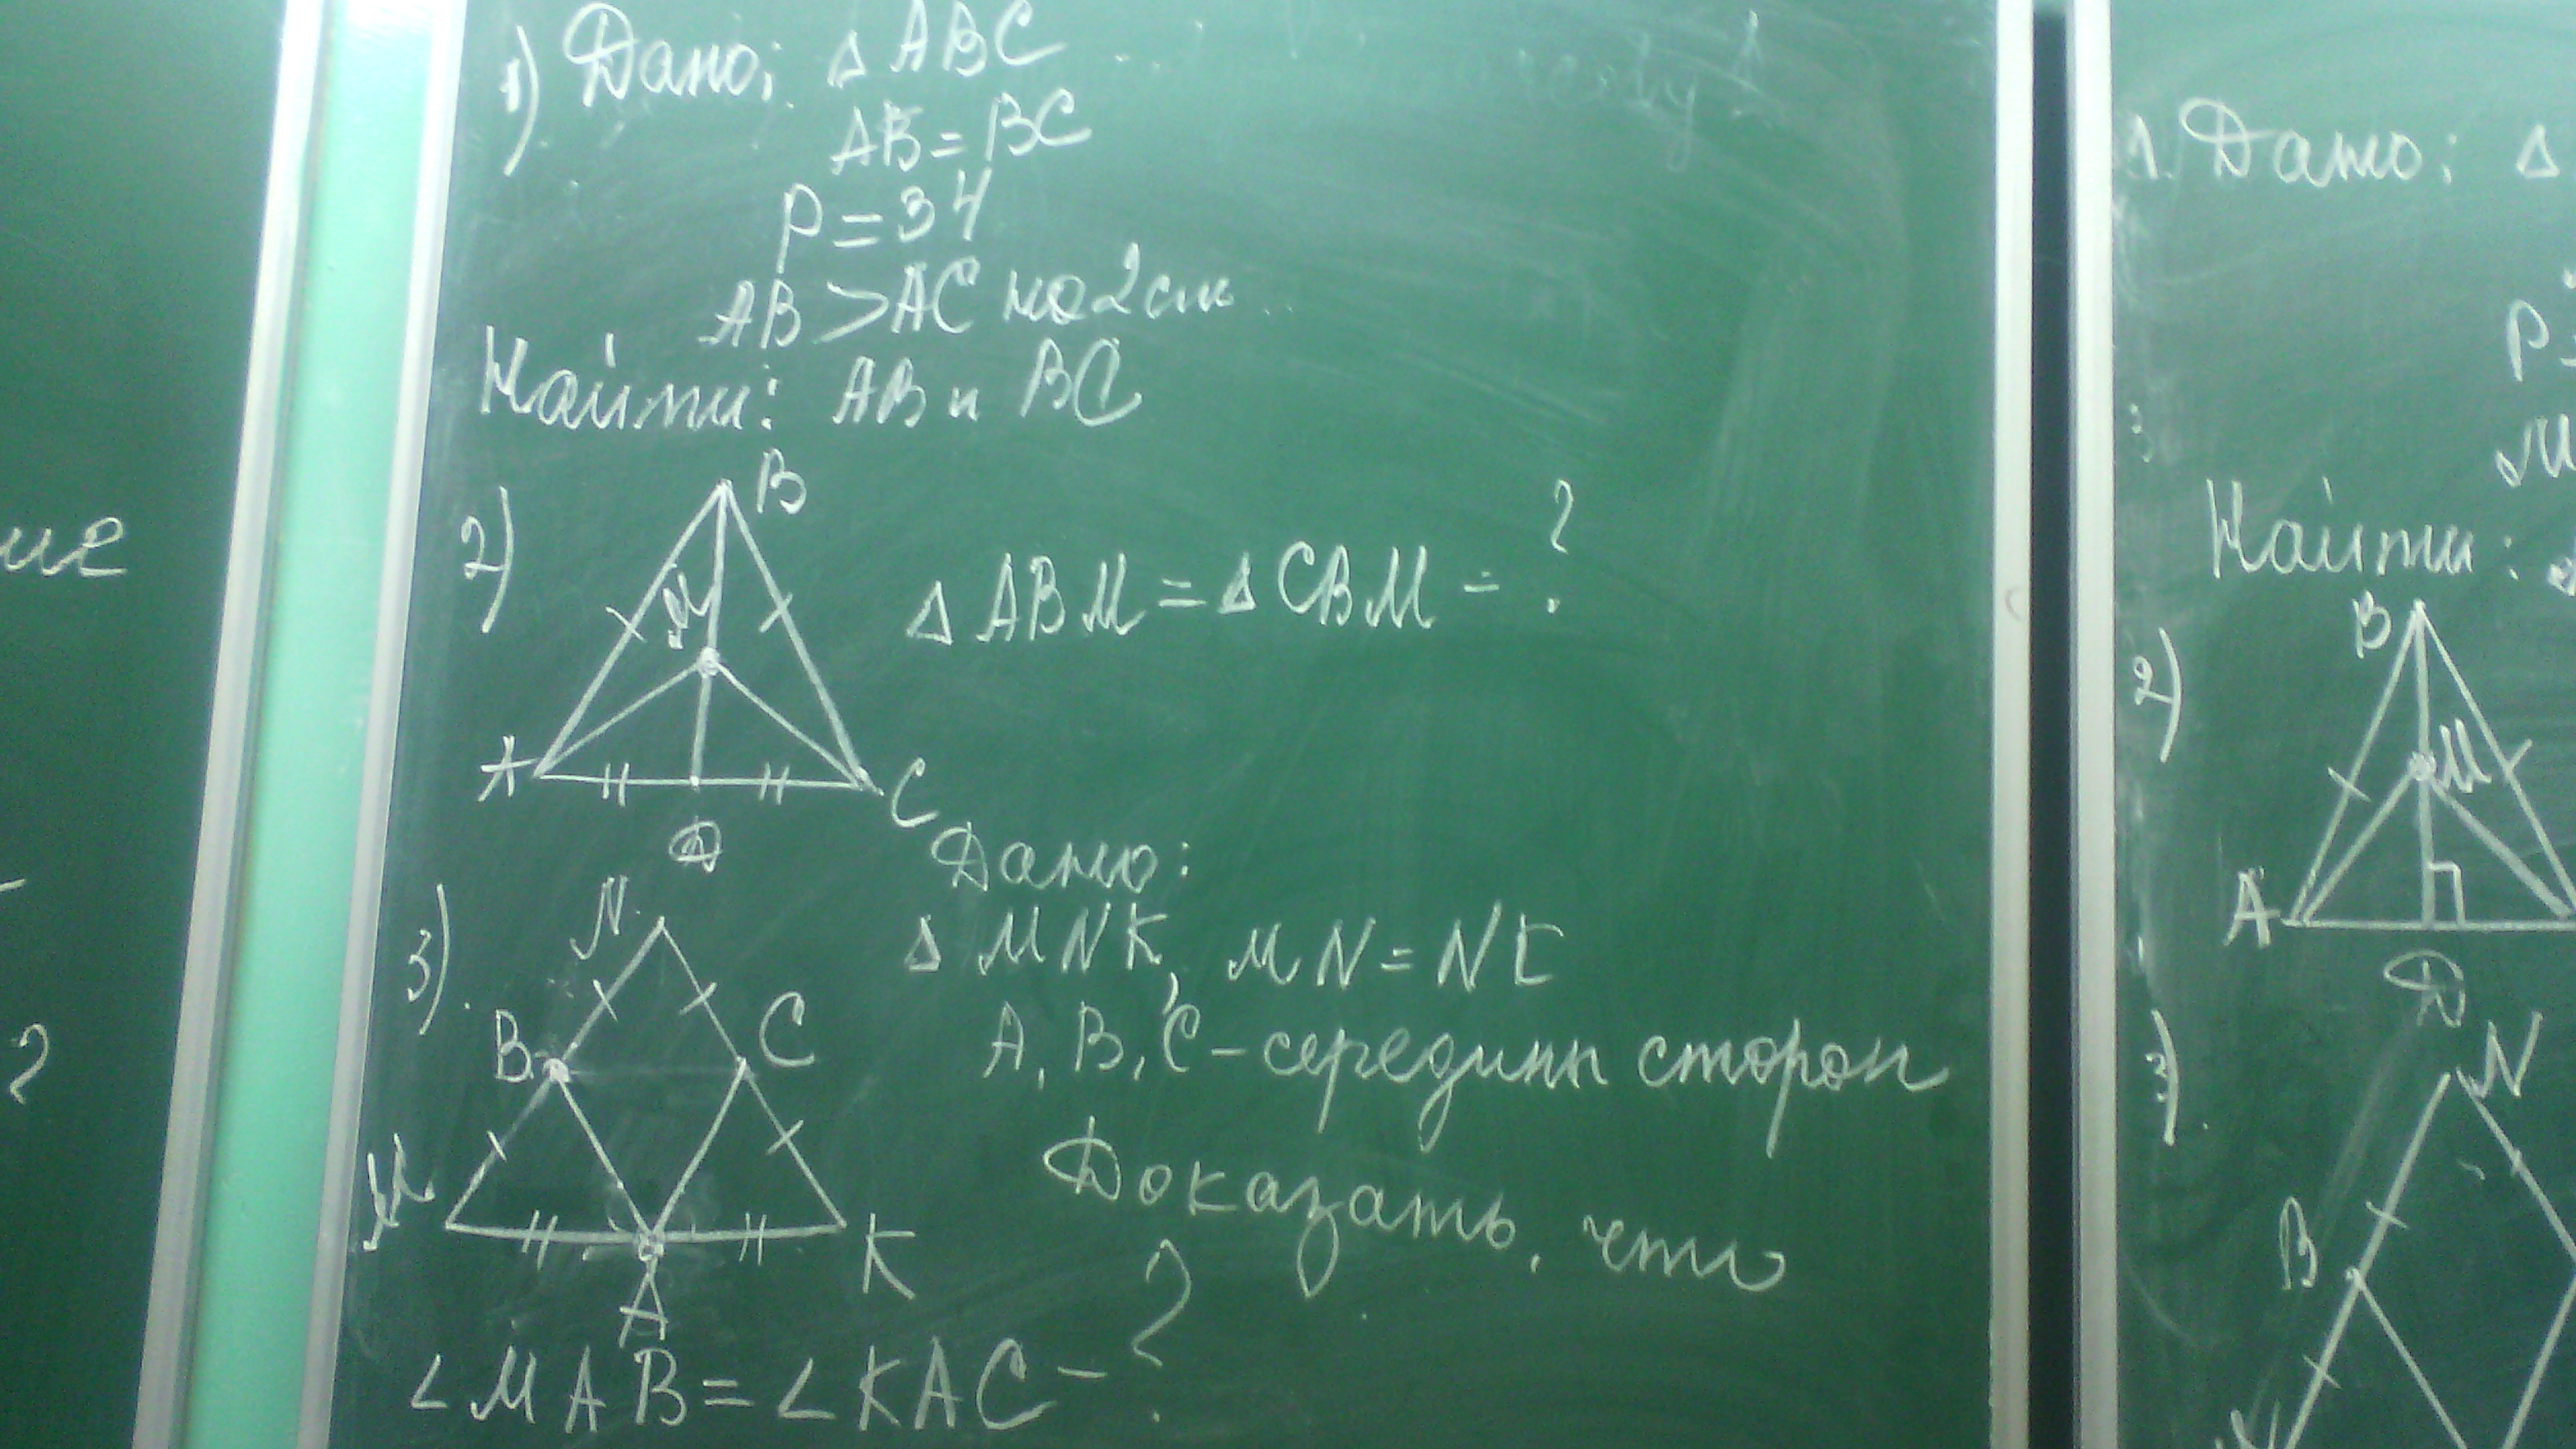 ие
?
1) Дано: △ ABC
AB = BC
P = 34
AB > AC на 2 см
Найти: AB и BC
2)
B
M
A
C
D
△ ABM = △ CBM - ?
3)
N
B
C
M
K
A
Дано:
△ MNK, MN = NK
A, B, C - середины сторон
Доказать, что
∠ MAB = ∠ KAC - ?
1. Дано: △
P =
Найти:
2)
B
M
A
D
3)
N
B